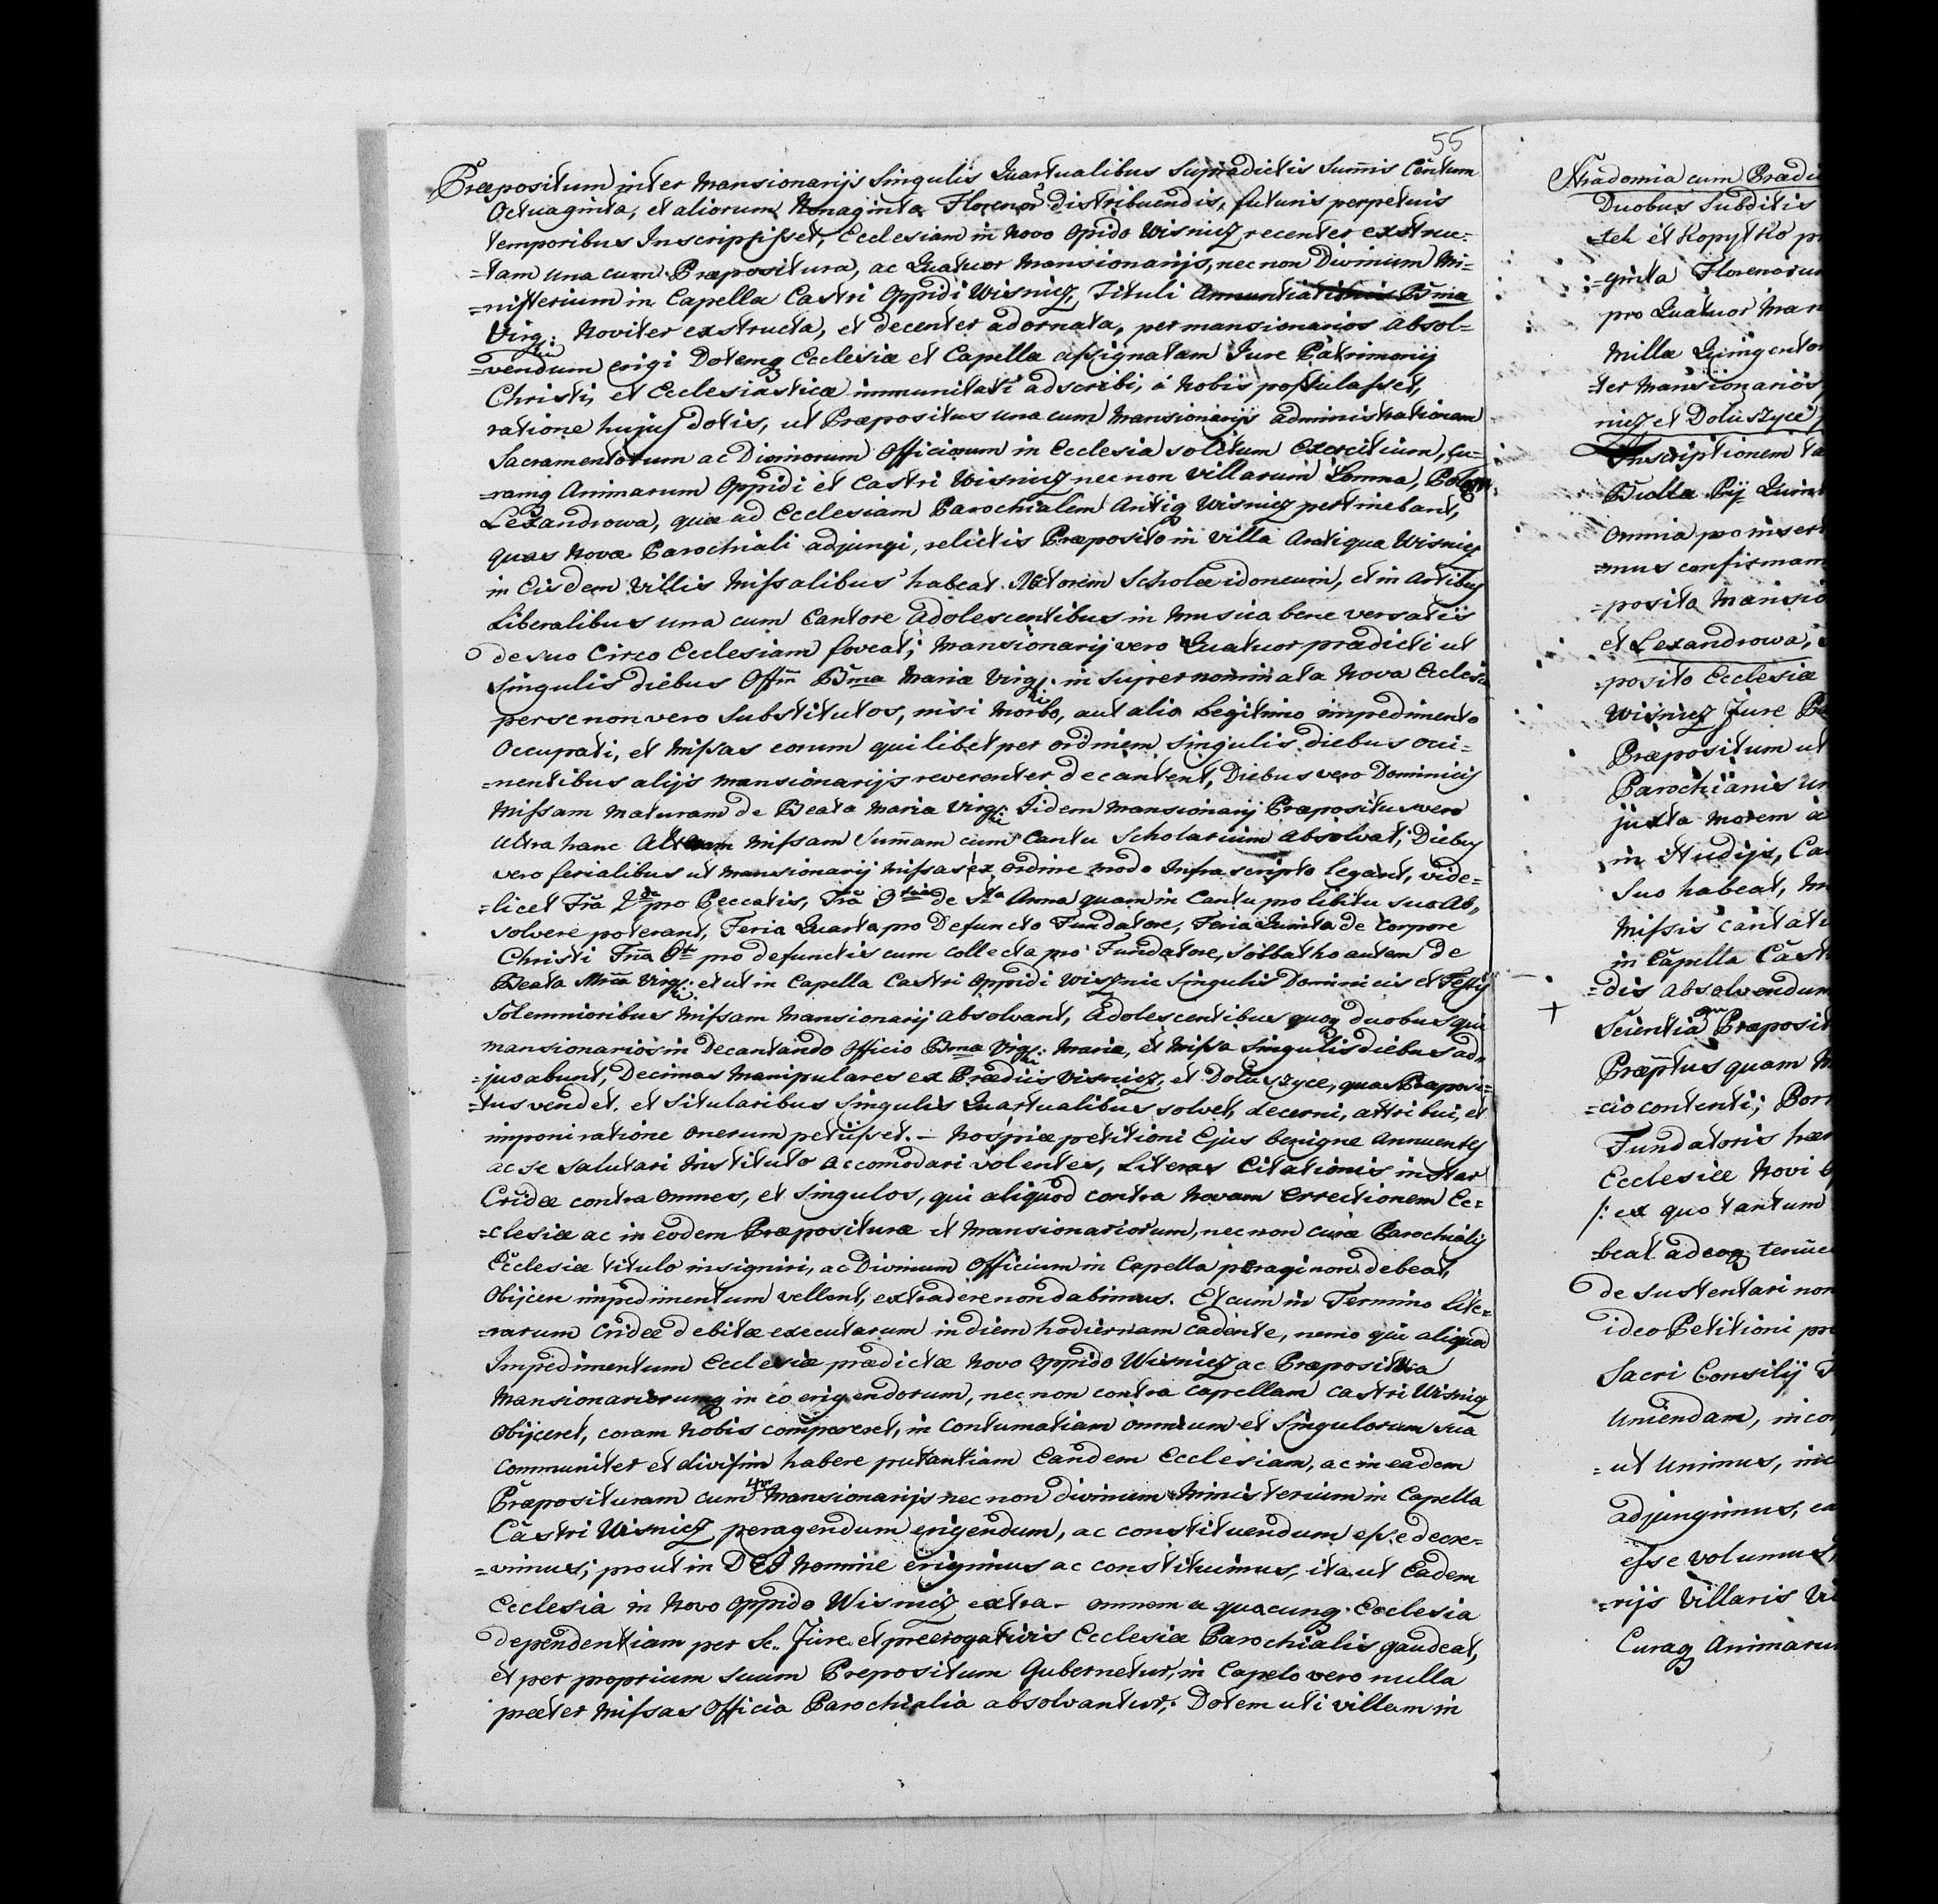 55
Præpositum inter Mansionarijs Singulis Quartualibus Supradictis Sum̄is Centum
Octuaginta, et aliorum Nonaginta Florenor̃ distribuendis, futuris perpetuis
temporibus Inscripsisset, Ecclesiam in Novo Opido Wisnicz recenter exstruc-
=tam una cum Præpositura, ac Quatuor Mansionarijs, nec non Divinum Mi=
=nisterium in Capella Castri Oppidi Wisnicz, Tituli Annuntiationis Bm̃æ
Virg: Noviter exstructa, et decenter adornata, per mansionarios absol=
=vendum erigi Dotemq Ecclesiæ et Capellæ assignatam Jure Patrimonij
Christi, et Ecclesiasticæ immunitati adscribi, a Nobis postulasset,
ratione hujus dotis, ut Præpositus una cum Mansionarijs administrationem
Sacramentorum ac Divinorum Officiorum in Ecclesia solitum Exercitium, Cu=
=ramq Animarum Oppidi et Castri Wisnicz nec non Villarum Lomna,
Lexandrowa, quæ ad Ecclesiam Parochialem Antiq Wisnicz pertinebant,
quas Novæ Parochiali adjungi, relictis Præposito in Villa Antiqua Wisnicz
in Eisdem Villis Missalibus habeat Rectorem Scholæ idoneum, et in Artibus
Liberalibus una cum Cantore Adolescentibus in Musica bene versatis
de suo Circa Ecclesiam foveat; Mansionarij vero Quatuor prædicti ut
Singulis diebus Offm̃ Bm̃æ Mariæ Virg: in supernominata Nova Ecclesia
per se non vero Substitutos, nisi Morbo, aut alio legitimo impedimento
Occupati, et Missas eorum quilibet per ordinem singulis diebus
=nentibus alijs Mansionarijs reverenter decantent, Diebus vero Dominicis
Missam Maturam de Beata Maria Virg: Iidem Mansionarij Præpositus vero
Ultra hanc Alteram Missam Sum̄am cum Cantu Scholarium absolvat; Diebus
vero ferialibus ut Mansionarij Missas ex Ordine modo Infra scripto legant, vide=
=licet Fr̃a 2da pro Peccatis, Fr̃a 3tia de Sta Anna quam in Cantu pro libitu suo Ab=
solvere poterant, Feria Quarta pro Defuncto Fundatore, Feria Quinta de Corpore
Christi Fr̃a 6ta pro defunctis cum collecta pro Fundatore, Sabbatho autem de
Beata Mr̃ia Virg: et ut in Capella Castri Oppidi Wisznic Singulis Dominicis et Festis
Solemnioribus Missam Mansionarij absolvant, Adolescentibus quoq duobus qui
mansionarios in Decantando Officio Bm̃æ Virg: Mariæ, et Missa Singulis diebus ad=
=juvabunt, Decimas Manipulares ex Prædiis Visnicz, et Doluszyce, quas Præposi=
=tus vendet, et Titularibus Singulis Quartualibus solvet, decerni, attribui, et
imponi ratione onerum petiisset. – Nos piæ petitioni Ejus benigne Annuentes
ac se Salutari Instituto accomodari volentes, Literas Citationis instar
Cridæ contra omnes, et Singulos, qui aliquod contra Novam Errectionem Ec=
=clesiæ ac in eodem Præposituræ et Mansionariorum, nec non curæ Parochialis
Ecclesiæ titulo insigniri, ac Divinum Officium in Capella peragi non debeat,
Obijcere impedimentum vellent, extradere non dabimus. Et cum in Termino Lite=
=rarum Cridæ debitæ executarum in diem hodiernam cadente, nemo qui aliquod
Impedimentum Ecclesiæ prædictæ Novo Oppido Wisnicz ac Præpositura
Mansionariorumq in eo erigendorum, nec non contra Capellam Castri Wisnicz
Obijceret, coram Nobis compareret, in Contumatiam omnium et Singulorum sua
Communiter et divisim habere putantiam Eandem Ecclesiam, ac in eadem
Præposituram cum 4or Mansionarijs nec non divinum Ministerium in Capella
Castri Wisnicz peragendum erigendum, ac constituendum esse decre=
=vimus; prout in DEI Nomine erigimus ac constituimus, ita ut Eadem
Ecclesia in Novo Oppido Wisnicz extra – omnem a quacunq. Ecclesia
dependentiam per Se.. Jure et prærogativis Ecclesiæ Parochialis gaudeat,
et per proprium Suum Prepositum Gubernetur, in Capela vero nulla
præter Missas Officia Parochialia absolvantur; Dotem uti villam in
Stradomia cum Prædi
Duobus Subditis
=tek et Kopytko p
=ginta Florenorum
pro Quatuor Man
Mille Quingentor
=ter Mansionarios
nicz et Doluszyce
Inscriptionem ta
Bullæ Pij Quin
Omnia pro insert
=mus confirmam
=posito Mansio
et Lexandrowa,
=posito Ecclesiæ
Wisnicz Jure Pa
Præpositum ut
Parochianis un
juxta morem a
in Studijs, Ca
Suo habeat, M
Missis cantati
in Capella Cast
=dis absolvendum
Scientia Præposit
Præptus quam M
=cio contenti; Por
Fundatoris hær
Ecclesiæ Novi O
/: ex quo tantum
=beat adeoq tenue
de sustentari non
ideo Petitioni pr
Sacri Consilij T
Uniendam, inco
=ut Unimus, inc
adjungimus, ea
esse volumus,
=rijs Villaris Vi
Curaq Animarum